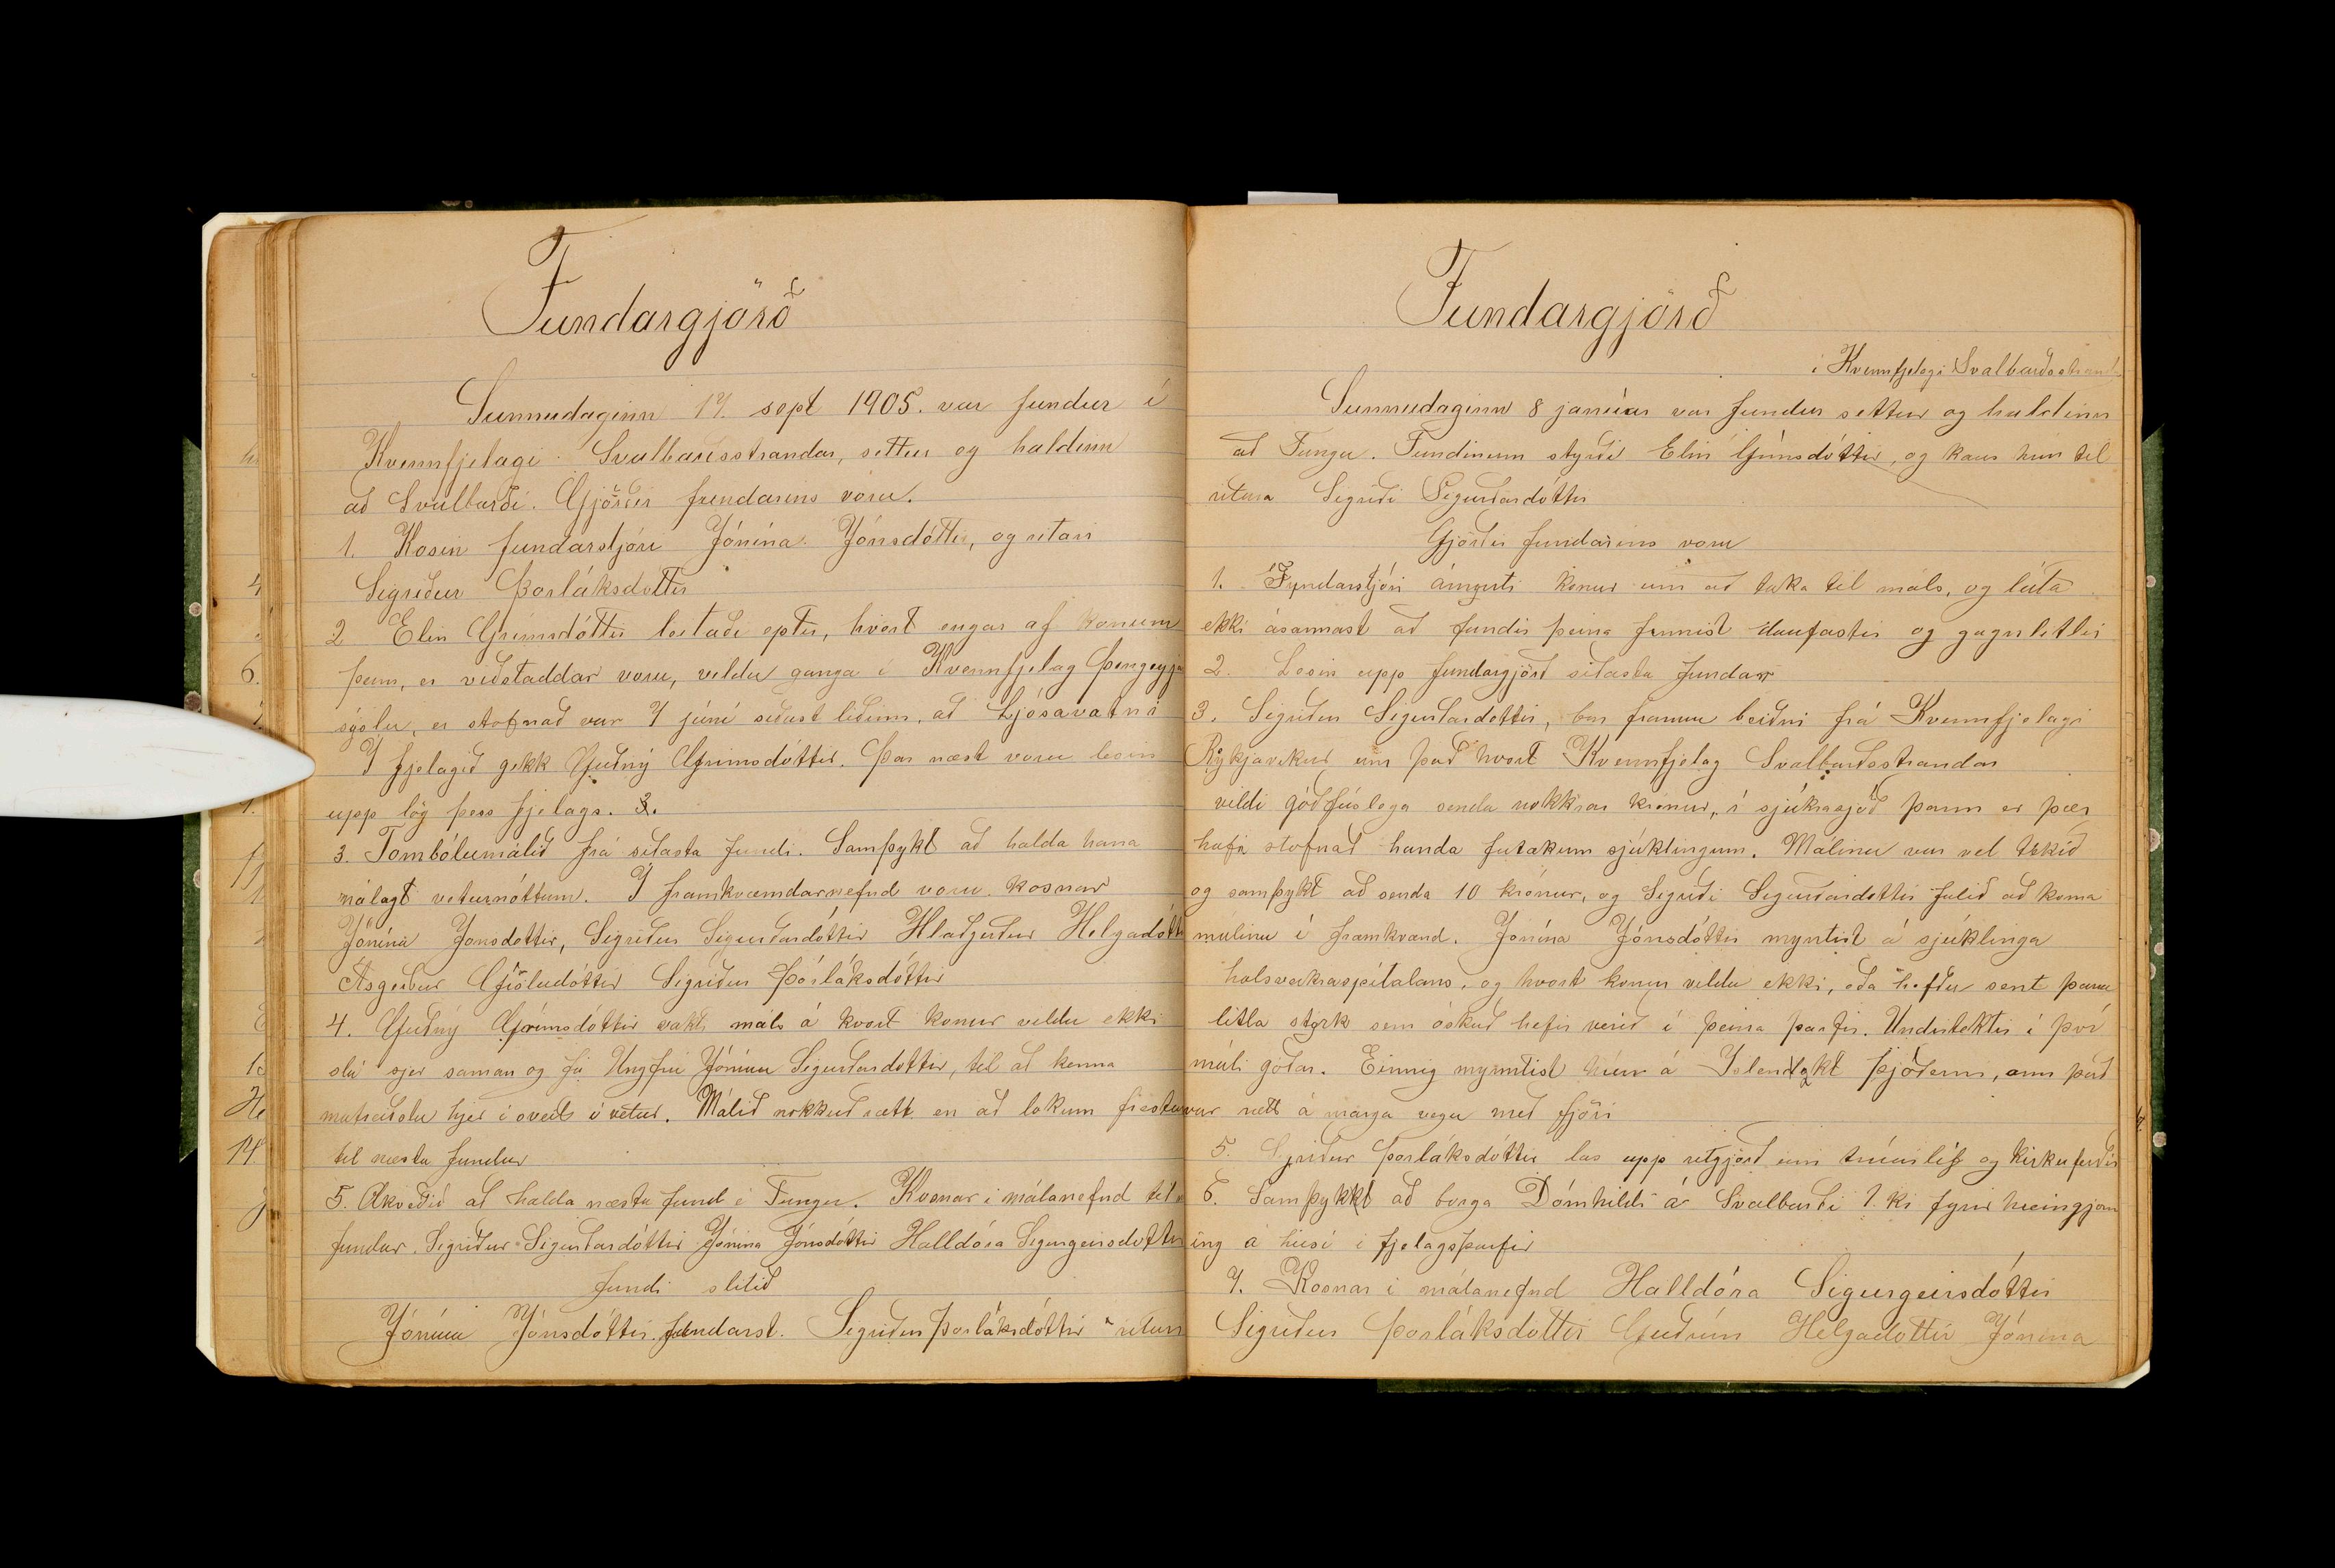 Fundargjörð
Sunnudaginn 17. sept 1905. var fundur í
Kvennfjelagi Svalbarðsstrandar, settur og haldinn
að Svalbarði. Gjörðir fundarins voru.
1. Kosin fundarstjóri Jónína Jónsdóttir, og ritari
Sigríður Þorláksdóttir
2 Elin Grímsdóttir leitaði eptir, hvort engar af konum
þeim, er viðstaddar voru, vildu ganga í Kvennfjelag Þingeyja
sýslu, er stofnað var 7 júní síðast liðinn, að Ljósavatni
Í fjelagið gekk Guðný Grímsdóttir. Þar næst voru lesin
upp lög þess fjelags. 3.
3. Tombólumálið frá síðasta fundi. Samþykt að halda hana
nálagt veturnóttum. Í framkvæmdarnefnd voru kosnar
Jónína Jonsdottir, Sigríður Sigurðardóttir Hlaðgerður Helgadótti
Ásgerður Gísladóttir Sigríður Þórláksdóttir
4. Guðný Grímsdóttir vakti máls á hvort konur vildu ekki
slá sjer saman og fá Ungfrú Jónínu Sigurðardóttir, til að kenna
matreiðslu hjer í sveit í vetur. Málið nokkuð rætt en að lokum frestað
til næsta fundur
5. Akveðið að halda næsta fund í Tungu. Kosnar í málanefnd til
fundar Sigríður Sigurðardóttir Jónína Jónsdóttir Halldóra Sigurgeirsdottir
fundi slitið
Jónína Jónsdóttir fundarst. Sigríður Þorláksdóttir ritari
Fundargjörð
í Kvennfjelagi Svalbarðsstrand
Sunnudaginn 8 janúar var fundur settur og haldinn
að Tungu. Fundinum styrði Elin Grímsdóttir, og kaus hún til
ritara Sigríði Sigurðardóttir
Gjörðir fundarins voru
1. Fundarstjóri áminnti konur um að taka til máls, og láta
ekki ásannast að fundir þeirra finnist daufastir og gagnlitlir
2. Lesin upp fundargjörð síðasta fundar
3. Sigríður Sigurðardottir, bar framm beiðni frá Kvennfjelagi
Rykjavikur um það hvort Kvennfjelag Svalbarðsstrandar
vildi góðfúslega senda nokkrar krónur, í sjúkrasjóð þann er þær
hafa stofnað handa fátækum sjúklingum. Málinu var vel tekið
og samþykt að senda 10 krónur, og Sigríði Sigurðardottir falið að koma
málinu í framkvæmd. Jonína Jónsdóttir myntist á sjúklinga
holsveikraspítalans, og hvort konur vildu ekki, eða hefðu sent þann
litla styrk sem óskað hefir verið í þeirra þarfir. Undirtektir í því
máli góðar. Einnig mynntist hún á Íslendskt þjóðerni, var það
var rætt á marga vegu með fjöri
5. Sigríður Þorláksdóttir las upp ritgjörð um trúarlíf og kirkuferðir
6. Samþykkt að borga Dómhildi á Svalbarði 1 kr fyrir hreingjörn
ing á húsi í fjelagsþarfir
7. Kosnar í málanefnd Halldóra Sigurgeirsdóttir
Sigríður Þorláksdóttir Guðrún Helgadottir Jónína